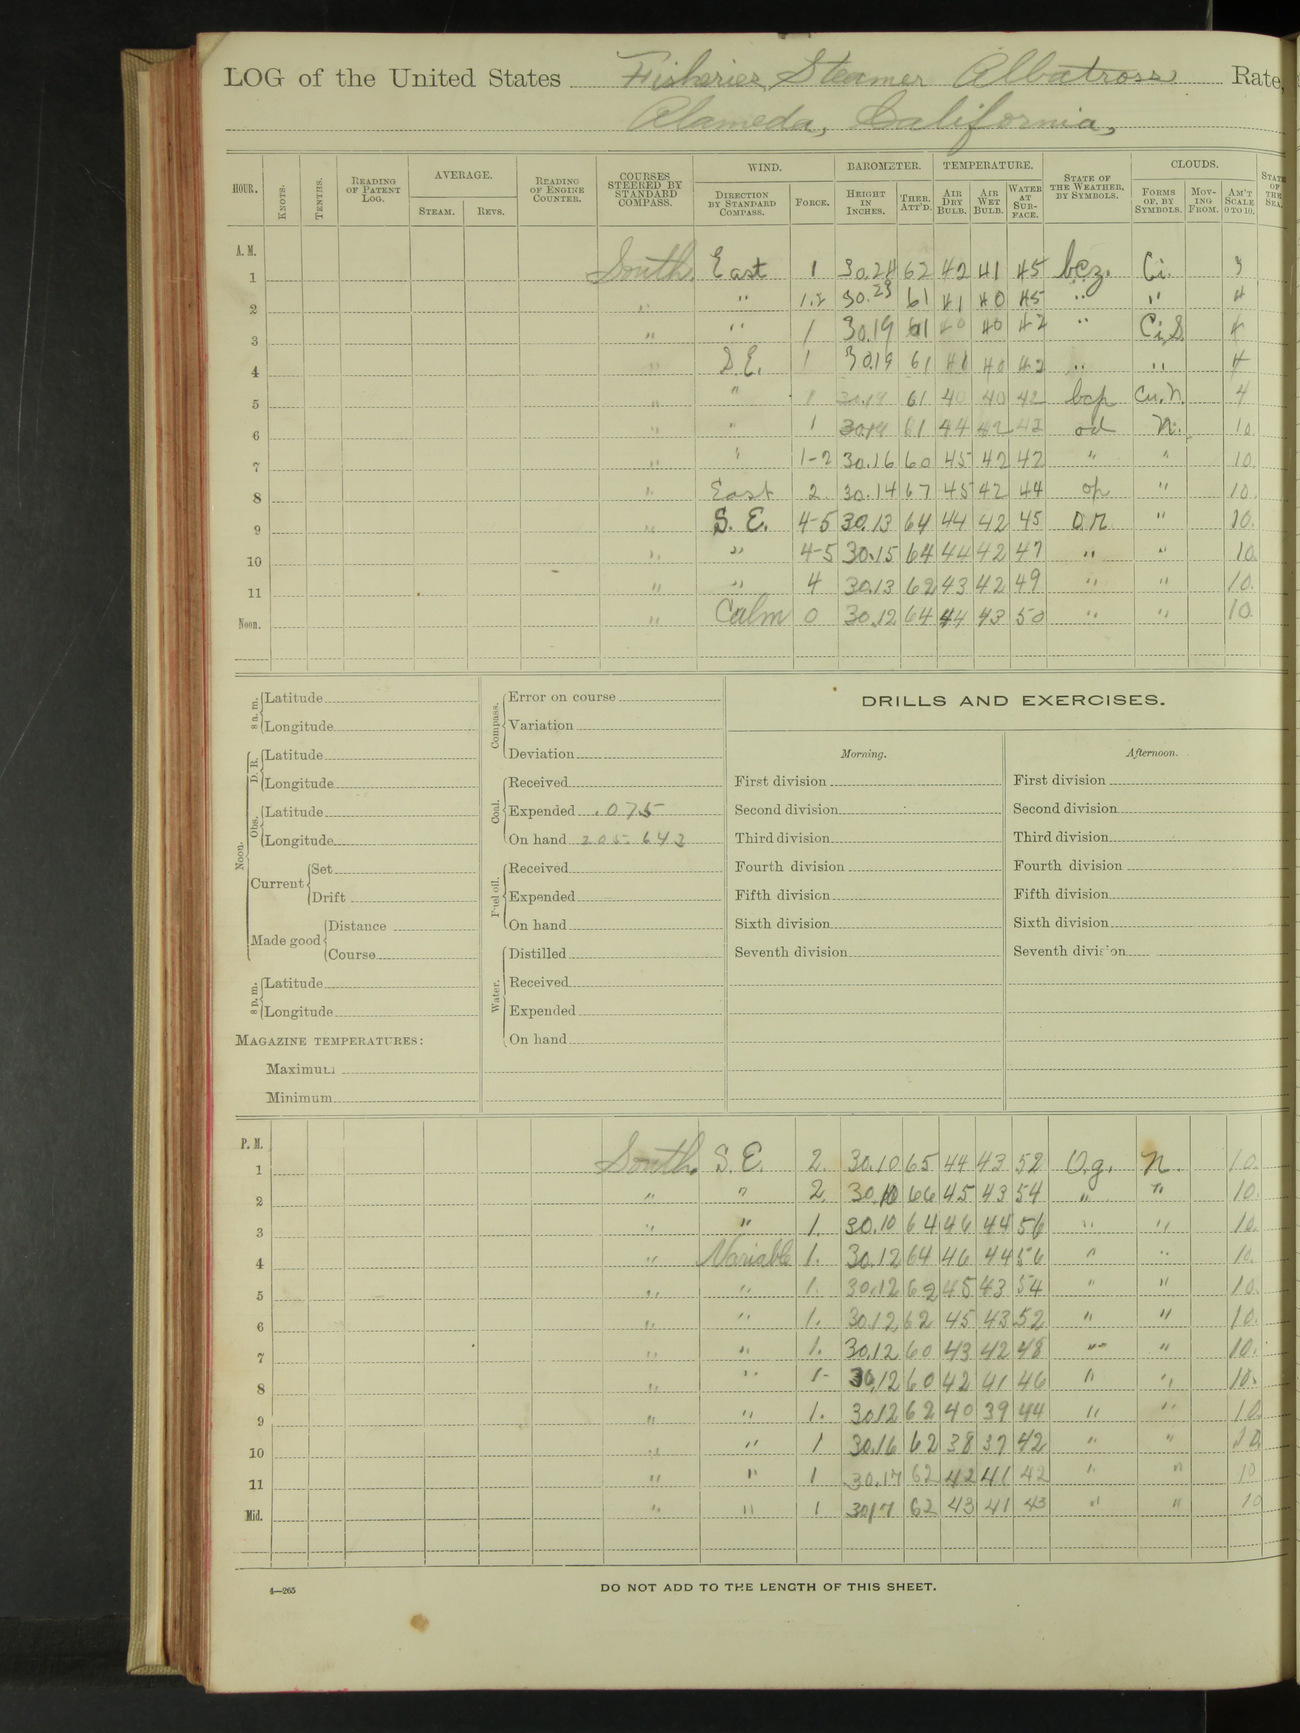 LOG of the United States Fisheries Steamer Albatross Rate,
Alameda, California,
HOUR. KNOTS. TENTHS. READING OF PATENT LOG. AVERAGE. STEAM. REVS. READING OF ENGINE COUNTER. COURSES STEERED BY STANDARD COMPASS. WIND. DIRECTION BY STANDARD COMPASS. FORCE. BAROMETER. HEIGHT IN INCHES. THER. ATT'D. TEMPERATURE. AIR DRY BULB. AIR WET BULB. WATER AT SUR-FACE. STATE OF THE WEATHER, BY SYMBOLS. CLOUDS. FORMS OF, BY SYMBOLS. MOV-ING FROM. AM'T SCALE 0 TO 10. STATE OF THE SEA.
A. M.
1 South. East 1 30.24 62 42 41 45 bcz. Ci. 3
2 " " 1-2 30.23 61 41 40 45 " " 4
3 " " 1 30.19 61 40 40 42 " Ci.S 4
4 " S.E. 1 30.19 61 41 40 42 " " 4
5 " " 1 30.19 61 40 40 42 bcp Cu.N. 4
6 " " 1 30.19 61 44 42 42 od N. 10.
7 " " 1-2 30.16 60 45 42 42 " " 10.
8 " East 2. 30.14 67 45 42 44 op " 10.
9 " S. E. 4-5 30.13 64 44 42 45 o.r. " 10.
10 " " 4-5 30.15 64 44 42 47 " " 10.
11 " " 4 30.13 62 43 42 49 " " 10.
Noon. " Calm 0 30.12 64 44 43 50 " " 10.
8 a. m. Latitude
Longitude
Noon. D. R. Latitude
Longitude
Obs. Latitude
Longitude
Current Set
Drift
Made good Distance
Course
8 p. m. Latitude
Longitude
MAGAZINE TEMPERATURES:
Maximum
Minimum
Compass. Error on course
Variation
Deviation
Coal. Received
Expended .075
On hand 205.643
Fuel oil. Received
Expended
On hand
Water. Distilled
Received
Expended
On hand
DRILLS AND EXERCISES.
Morning.
First division
Second division
Third division
Fourth division
Fifth division
Sixth division
Seventh division
Afternoon.
First division
Second division
Third division
Fourth division
Fifth division
Sixth division
Seventh division
P. M.
1 South. S. E. 2. 30.10 65 44 43 52 O.g. N. 10.
2 " " 2. 30.10 66 45 43 54 " " 10.
3 " " 1. 30.10 64 46 44 56 " " 10.
4 " Variable 1. 30.12 64 46 44 56 " " 10.
5 " " 1. 30.12 62 45 43 54 " " 10.
6 " " 1. 30.12 62 45 43 52 " " 10.
7 " " 1. 30.12 60 43 42 48 " " 10.
8 " " 1- 30.12 60 42 41 46 " " 10.
9 " " 1. 30.12 62 40 39 44 " " 10.
10 " " 1 30.16 62 38 37 42 " " 10
11 " " 1 30.17 62 42 41 42 " " 10
Mid. " " 1 30.17 62 43 41 43 " " 10
4—265
DO NOT ADD TO THE LENGTH OF THIS SHEET.